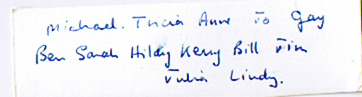 Michael. Tricia Anne To Gay
Ben Sarah Hildy Kerry Bill Tim
Julia Lindy.